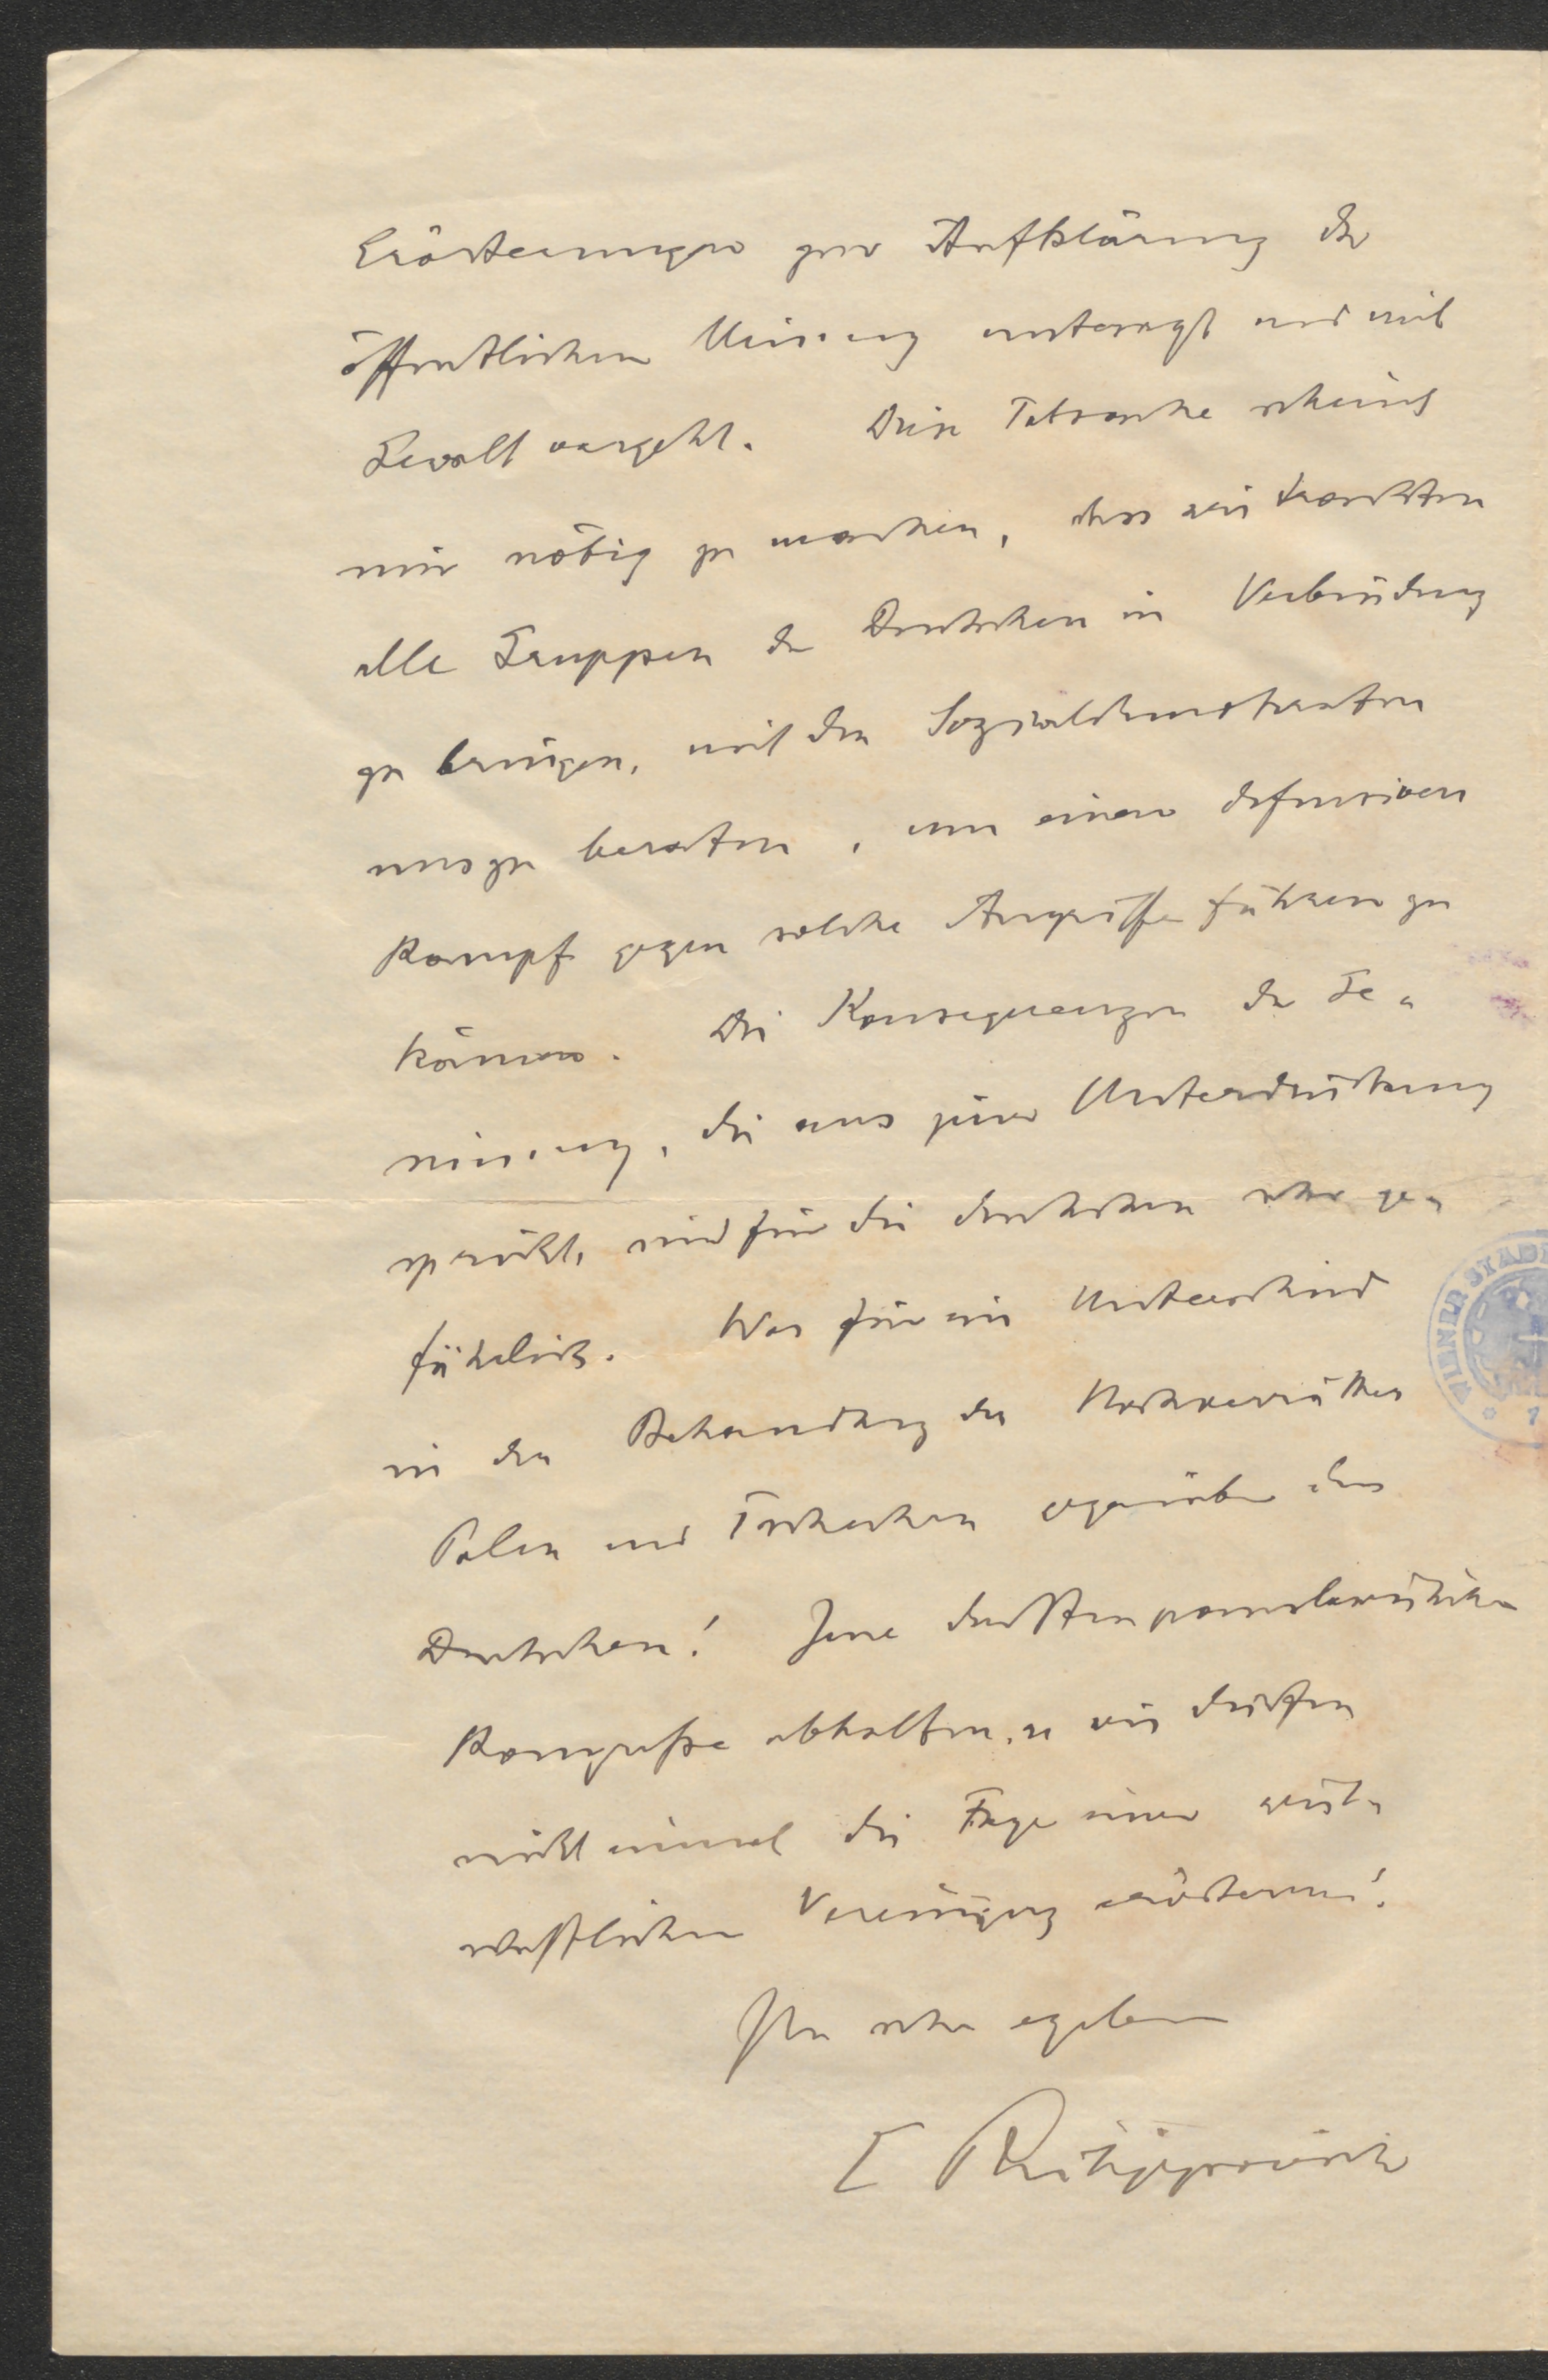 Erörterungen zur Aufklärung der
öffentlichen Meinung untersagt und mit
Gewalt vorgeht. Diese Tatsache scheint
mir nötig zu machen, dass wir trachten
alle Gruppen der Deutschen in Verbindung
zu bringen, mit den Sozialdemokraten
uns zu beraten, um einen defensiven
Kampf gegen solche Angriffe führen zu
können. Die Konsequenzen der Ge-
sinnung, die aus jener Unterdrückung
spricht, sind für die Deutschen sehr ge-
fährlich. Was für ein Unterschied
in der Behandlung der Hochverräther
Polen und Tschechen gegenüber den
Deutschen! Jene durften panslavistische
Kongresse abhalten, u wir dürfen
nicht einmal die Frage einer wirt-
schaftlichen Vereinigung erörtern!
Ihr sehr ergebener
E Philippovich
WIENER STADT